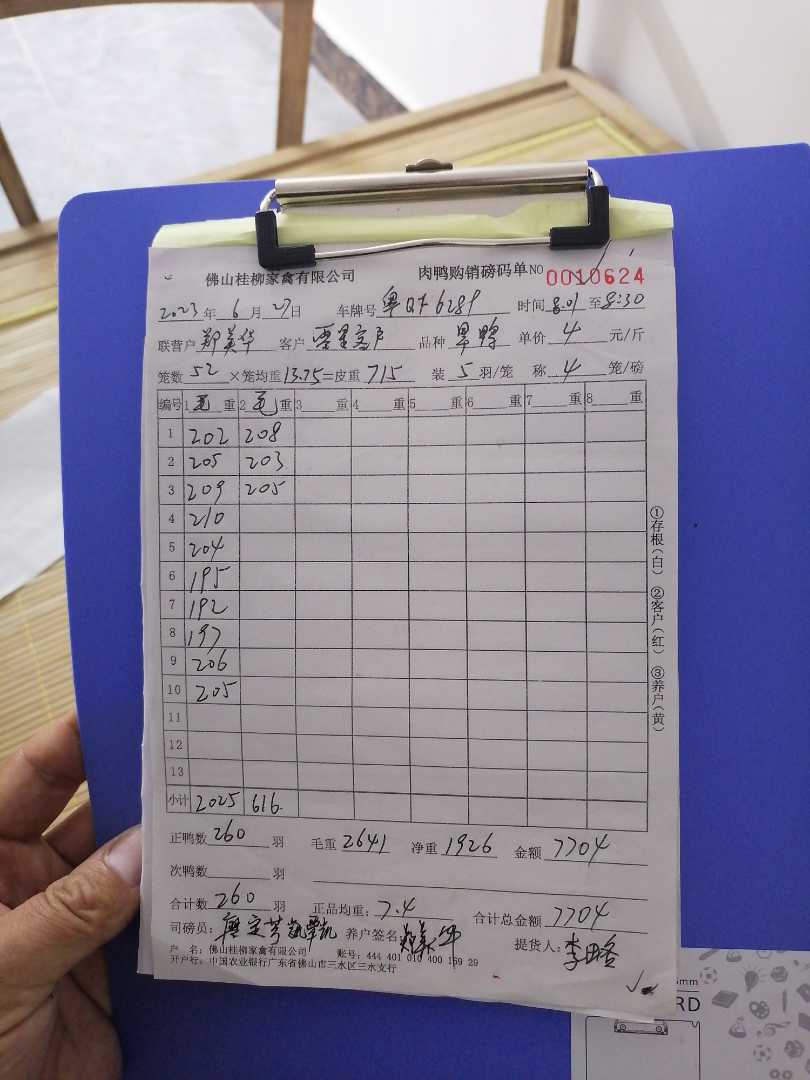 佛山桂柳家禽有限公司 肉鸭购销磅码单 NO 0010624
2023年6月27日 车牌号 粤Q 6289 时间 8:01至8:30
联营户 郑美华 客户 零星客户 品种 旱鸭 单价 4 元/斤
笼数 52 ×笼均重 13.75=皮重 715 装 5 羽/笼 称 4 笼/磅
编号 1 毛 重 2 毛 重 3 重 4 重 5 重 6 重 7 重 8 重
1 202 208
2 205 203
3 209 205
4 210
5 204
6 195
7 192
8 197
9 206
10 205
11
12
13
小计 2025 616
正鸭数 260 羽 毛重 2641 净重 1926 金额 7704
次鸭数 羽
合计数 260 羽 正品均重: 7.4 合计总金额 7704
司磅员: 养户签名 提货人: 李
户 名: 佛山桂柳家禽有限公司 账号: 444 401 010 400 159 29
开户行: 中国农业银行广东省佛山市三水区三水支行
①存根(白) ②客户(红) ③养户(黄)
mm
RD